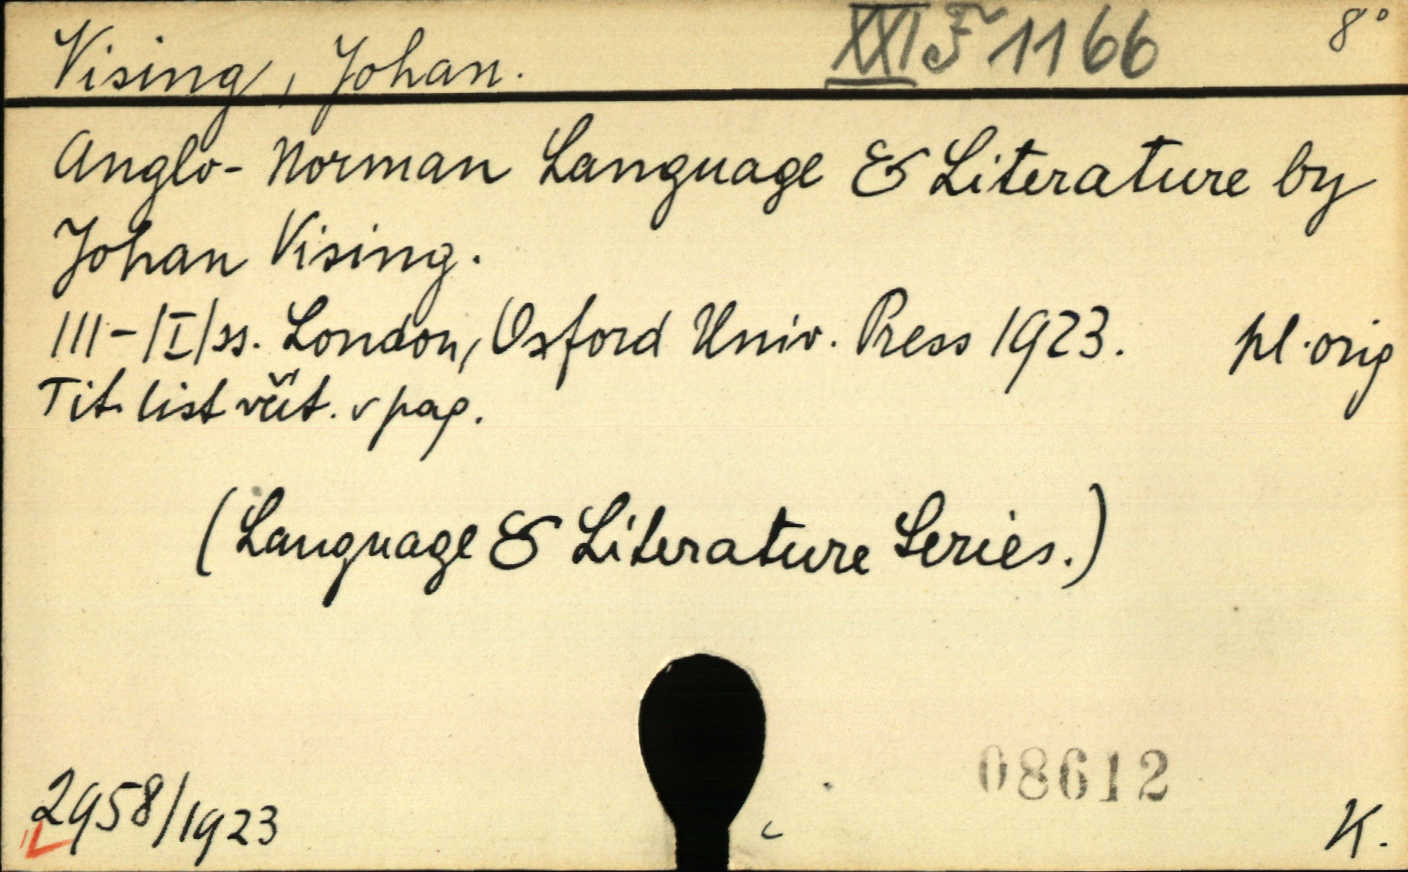 Vising, Johan. XXI F 1166 8°
Anglo-Norman Language & Literature by
Johan Vising.
111-/I/ss. London, Oxford Univ. Press 1923. pl. orig
Tit. list včít. v pag.
(Language & Literature Series.)
08612
2958/1923 K.